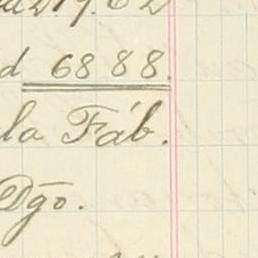 d 6888.
la Fáb.
Dgo.